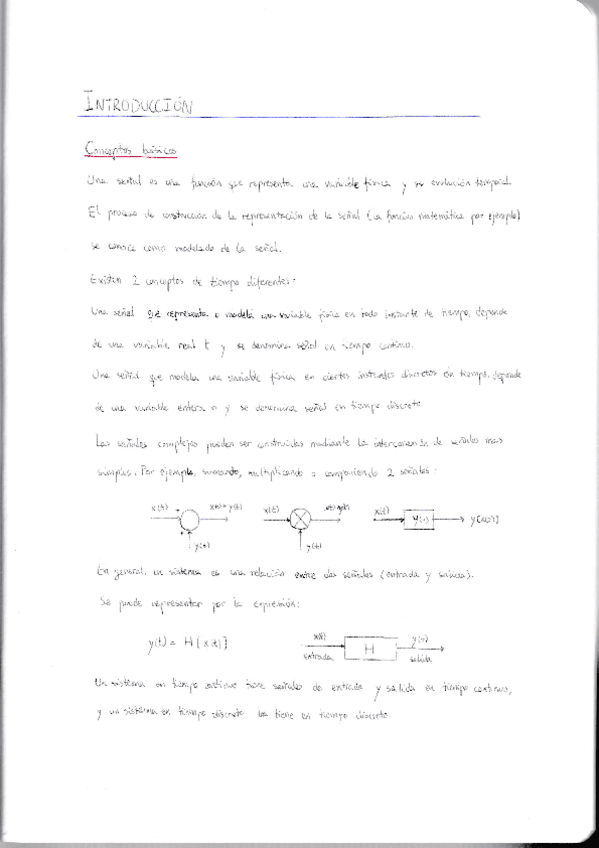 INTRODUCCIÓN
Conceptos básicos
Una señal es una función que representa una variable física y su evolución temporal.
El proceso de construcción de la representación de la señal (la función matemática por ejemplo)
se conoce como modelado de la señal.
Existen 2 conceptos de tiempo diferentes:
Una señal que representa o modela una variable física en todo instante de tiempo, depende
de una variable real t y se denomina señal en tiempo continuo.
Una señal que modela una variable física en ciertos instantes discretos de tiempo, depende
de una variable entera n y se denomina señal en tiempo discreto.
Las señales complejas pueden ser construidas mediante la interconexión de señales más
simples. Por ejemplo, sumando, multiplicando o componiendo 2 señales:
x(t) x(t) + y(t) x(t) x(t) y(t) x(t) y(t) y[x(t)]
+ +
y(t) y(t)
En general, un sistema es una relación entre dos señales (entrada y salida).
Se puede representar por la expresión:
y(t) = H[x(t)] x(t) H y(t)
entrada salida
Un sistema en tiempo continuo tiene señales de entrada y salida en tiempo continuo,
y un sistema en tiempo discreto las tiene en tiempo discreto.